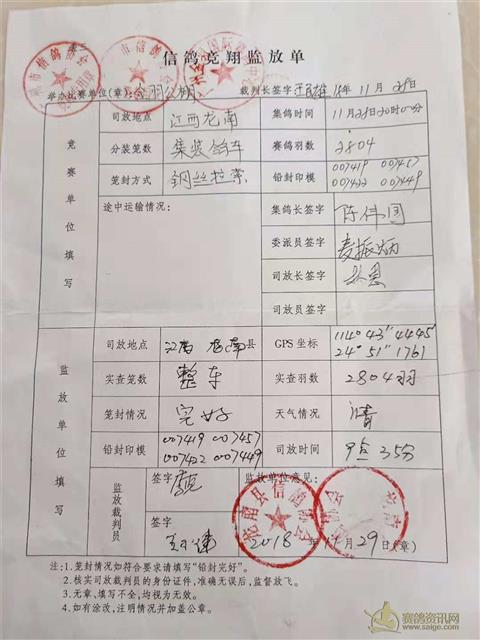 信鸽竞翔监放单
举办比赛单位(章): 裁判长签字 18年11月28日
竞赛单位填写
司放地点 江西龙南 集鸽时间 11月28日20时0分
分装笼数 集装鸽车 赛鸽羽数 2804
笼封方式 钢丝拉索 铅封印模 007419 007457
007422 007449
途中运输情况: 集鸽长签字 陈伟国
委派员签字 麦振炳
司放长签字
司放员签字
监放单位填写
司放地点 江西 龙南县 GPS坐标 114° 43" 4445'
24° 51" 1761
实查笼数 整车 实查羽数 2804羽
笼封情况 完好 天气情况 晴
铅封印模 007419 007457
007422 007449 司放时间 9点35分
监放裁判员 签字 监放单位意见:
签字 2018年11月29日(章)
龙南县信鸽
注:1.笼封情况如符合要求请填写"铅封完好"。
2.核实司放裁判员的身份证件,准确无误后,监督放飞。
3.无章、填写不全,均视为无效。
4.如有涂改,注明情况并加盖公章。
赛鸽资讯网
www.saige.com